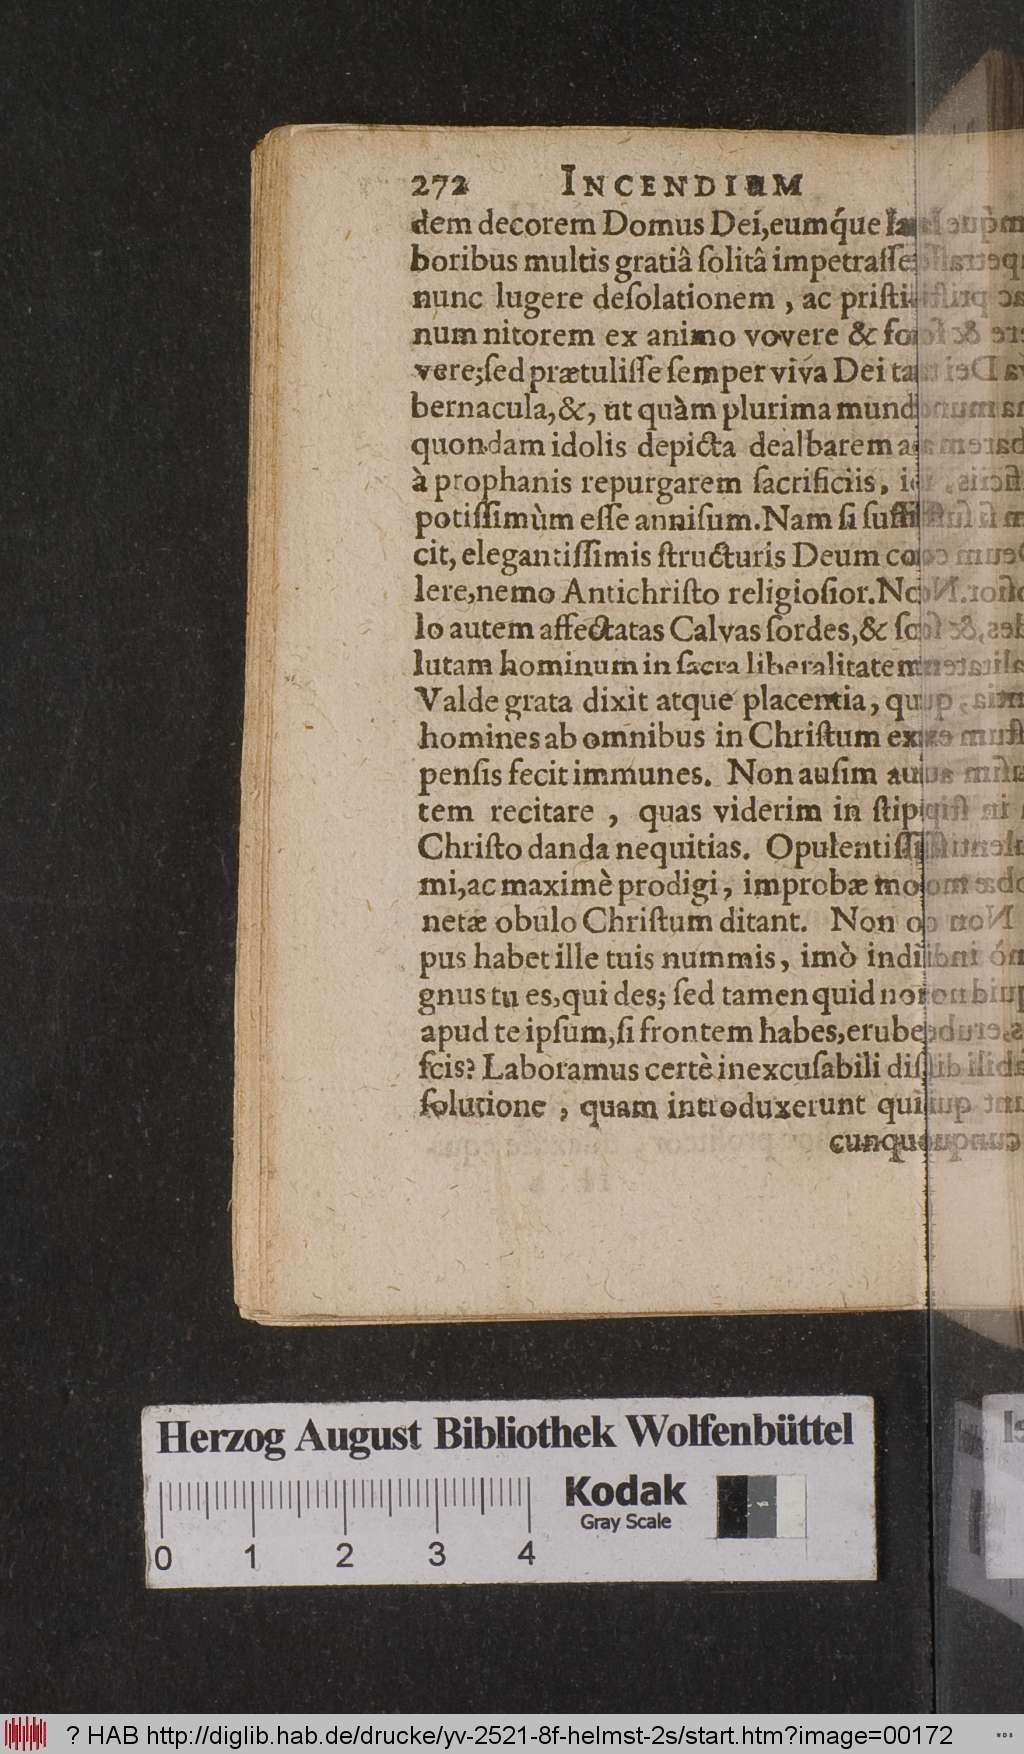 272 INCENDIUM
dem decorem Domus Dei, eumq́ue la-
boribus multis gratiâ ſolitâ impetraſſe
nunc lugere deſolationem, ac priſti-
num nitorem ex animo vovere & fo-
vere; ſed prætuliſſe ſemper viva Dei ta-
bernacula, &, ut quàm plurima mundi
quondam idolis depicta dealbarem a
à prophanis repurgarem ſacrificiis, id
potiſſimùm eſſe anniſum. Nam ſi ſuffi-
cit, elegantiſſimis ſtructuris Deum co-
lere, nemo Antichriſto religioſior. No-
lo autem affectatas Calvas ſordes, & ſo-
lutam hominum in ſacra liberalitatem
Valde grata dixit atque placentia, qui
homines ab omnibus in Chriſtum ex-
penſis fecit immunes. Non auſim au-
tem recitare, quas viderim in ſtipe
Chriſto danda nequitias. Opulentiſſi-
mi, ac maximè prodigi, improbæ mo-
netæ obulo Chriſtum ditant. Non o-
pus habet ille tuis nummis, imò indi-
gnus tu es, qui des; ſed tamen quid non
apud te ipſum, ſi frontem habes, erube-
ſcis? Laboramus certè inexcuſabili diſ-
ſolutione, quam introduxerunt qui-
cunque
Herzog August Bibliothek Wolfenbüttel
Kodak
Gray Scale
0 1 2 3 4
? HAB http://diglib.hab.de/drucke/yv-2521-8f-helmst-2s/start.htm?image=00172